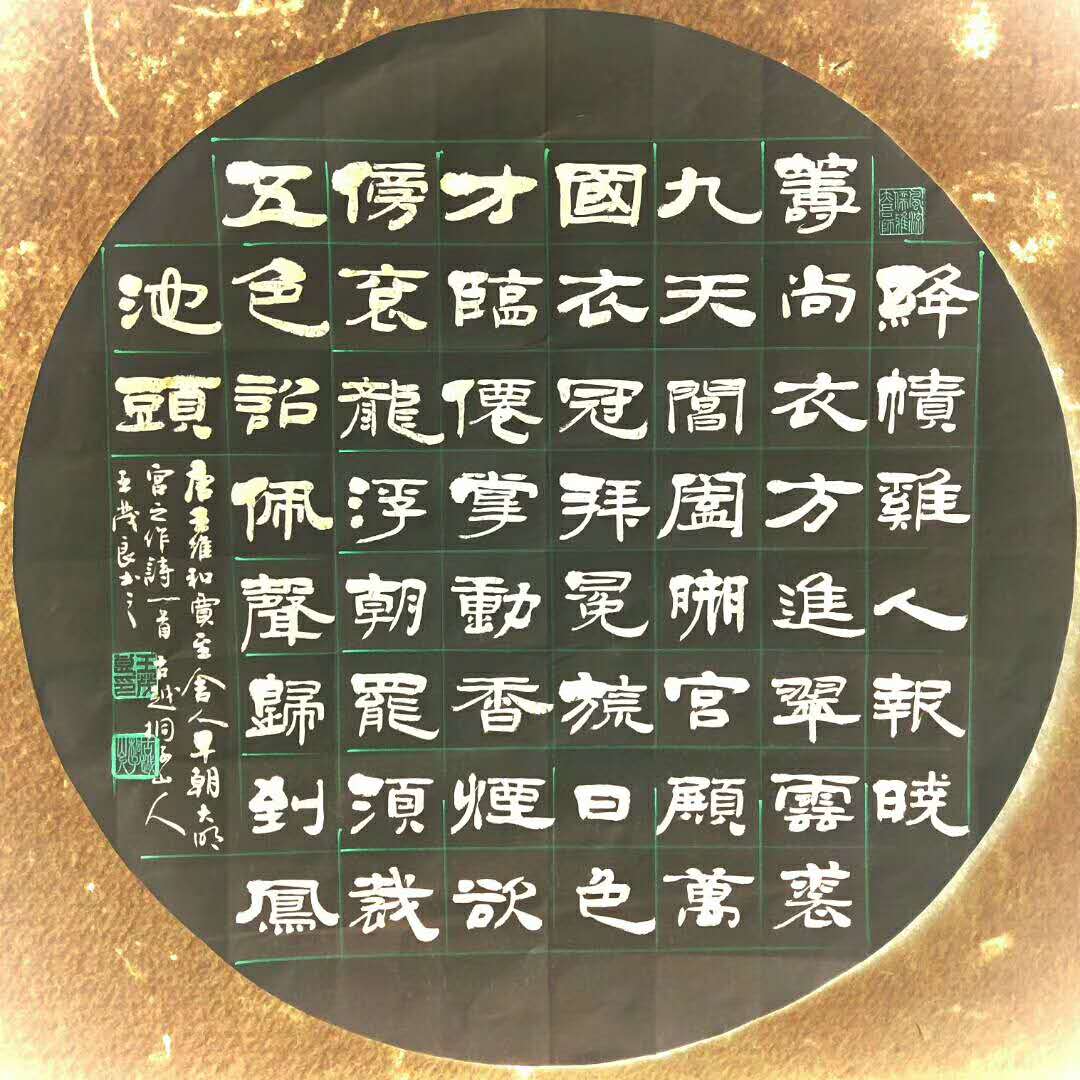 絳幘雞人報曉
籌尚衣方進翠雲裘
九天閶闔開宮殿萬
國衣冠拜冕旒日色
才臨僊掌動香煙欲
傍袞龍浮朝罷須裁
五色詔佩聲歸到鳳
池頭
唐王維和賈至舍人早朝大明
宮之作詩一首 古越桐山人
王茂良書之